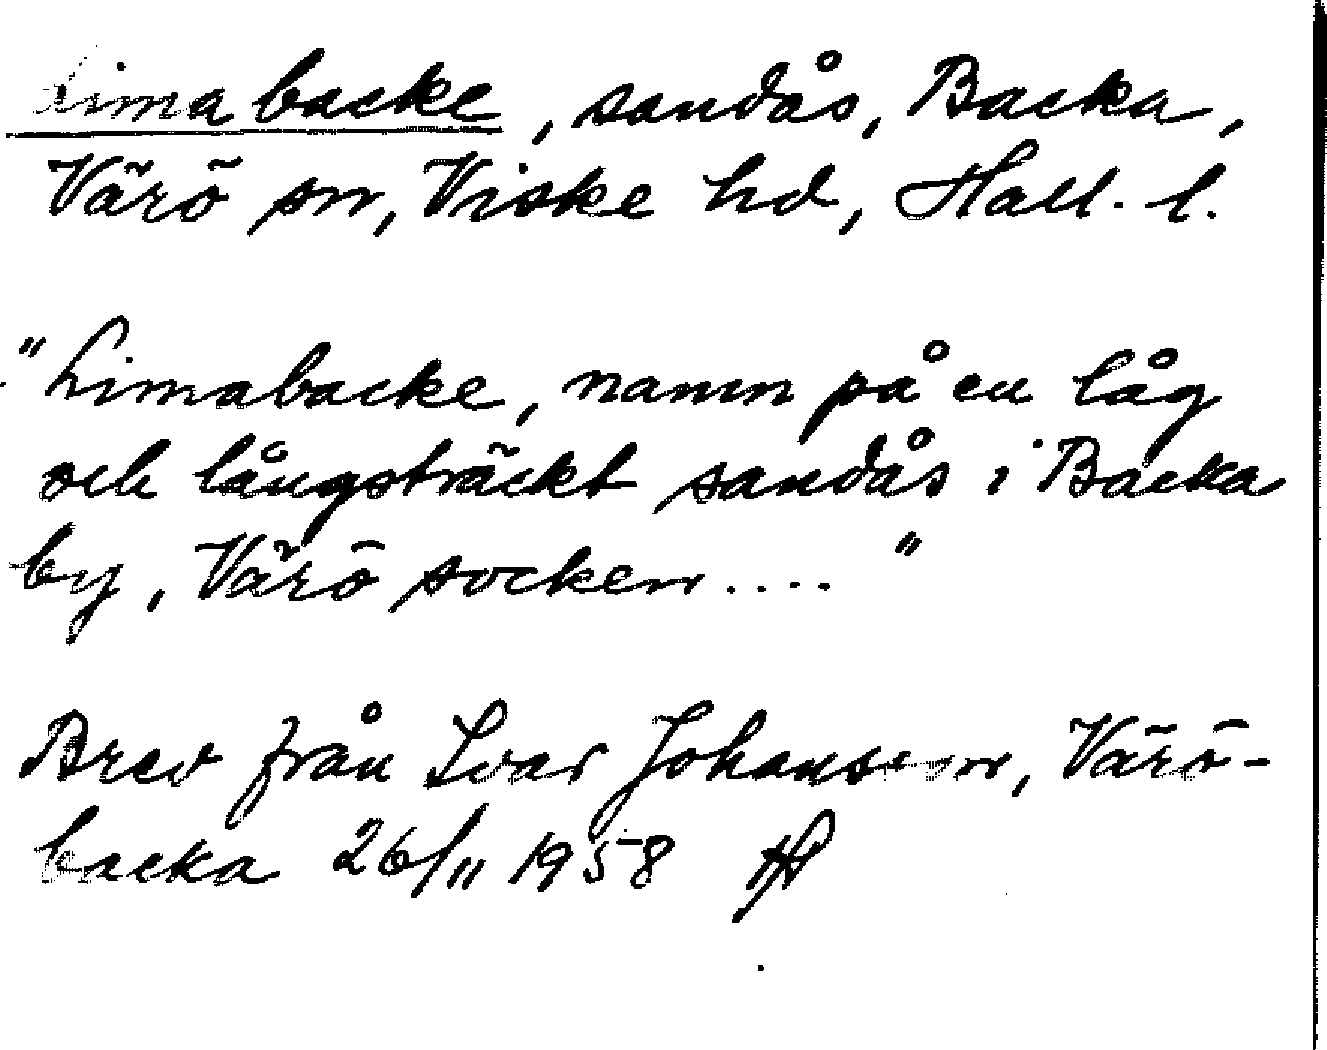 Limabacke, sandås, Backa,
Värö sn, Viske hd, Hall. l.
"Limabacke, namn på en låg
och långsträckt sandås i Backa
by, Värö socken...."
Brev från Ivar Johansson, Värö-
backa 26/11 1958